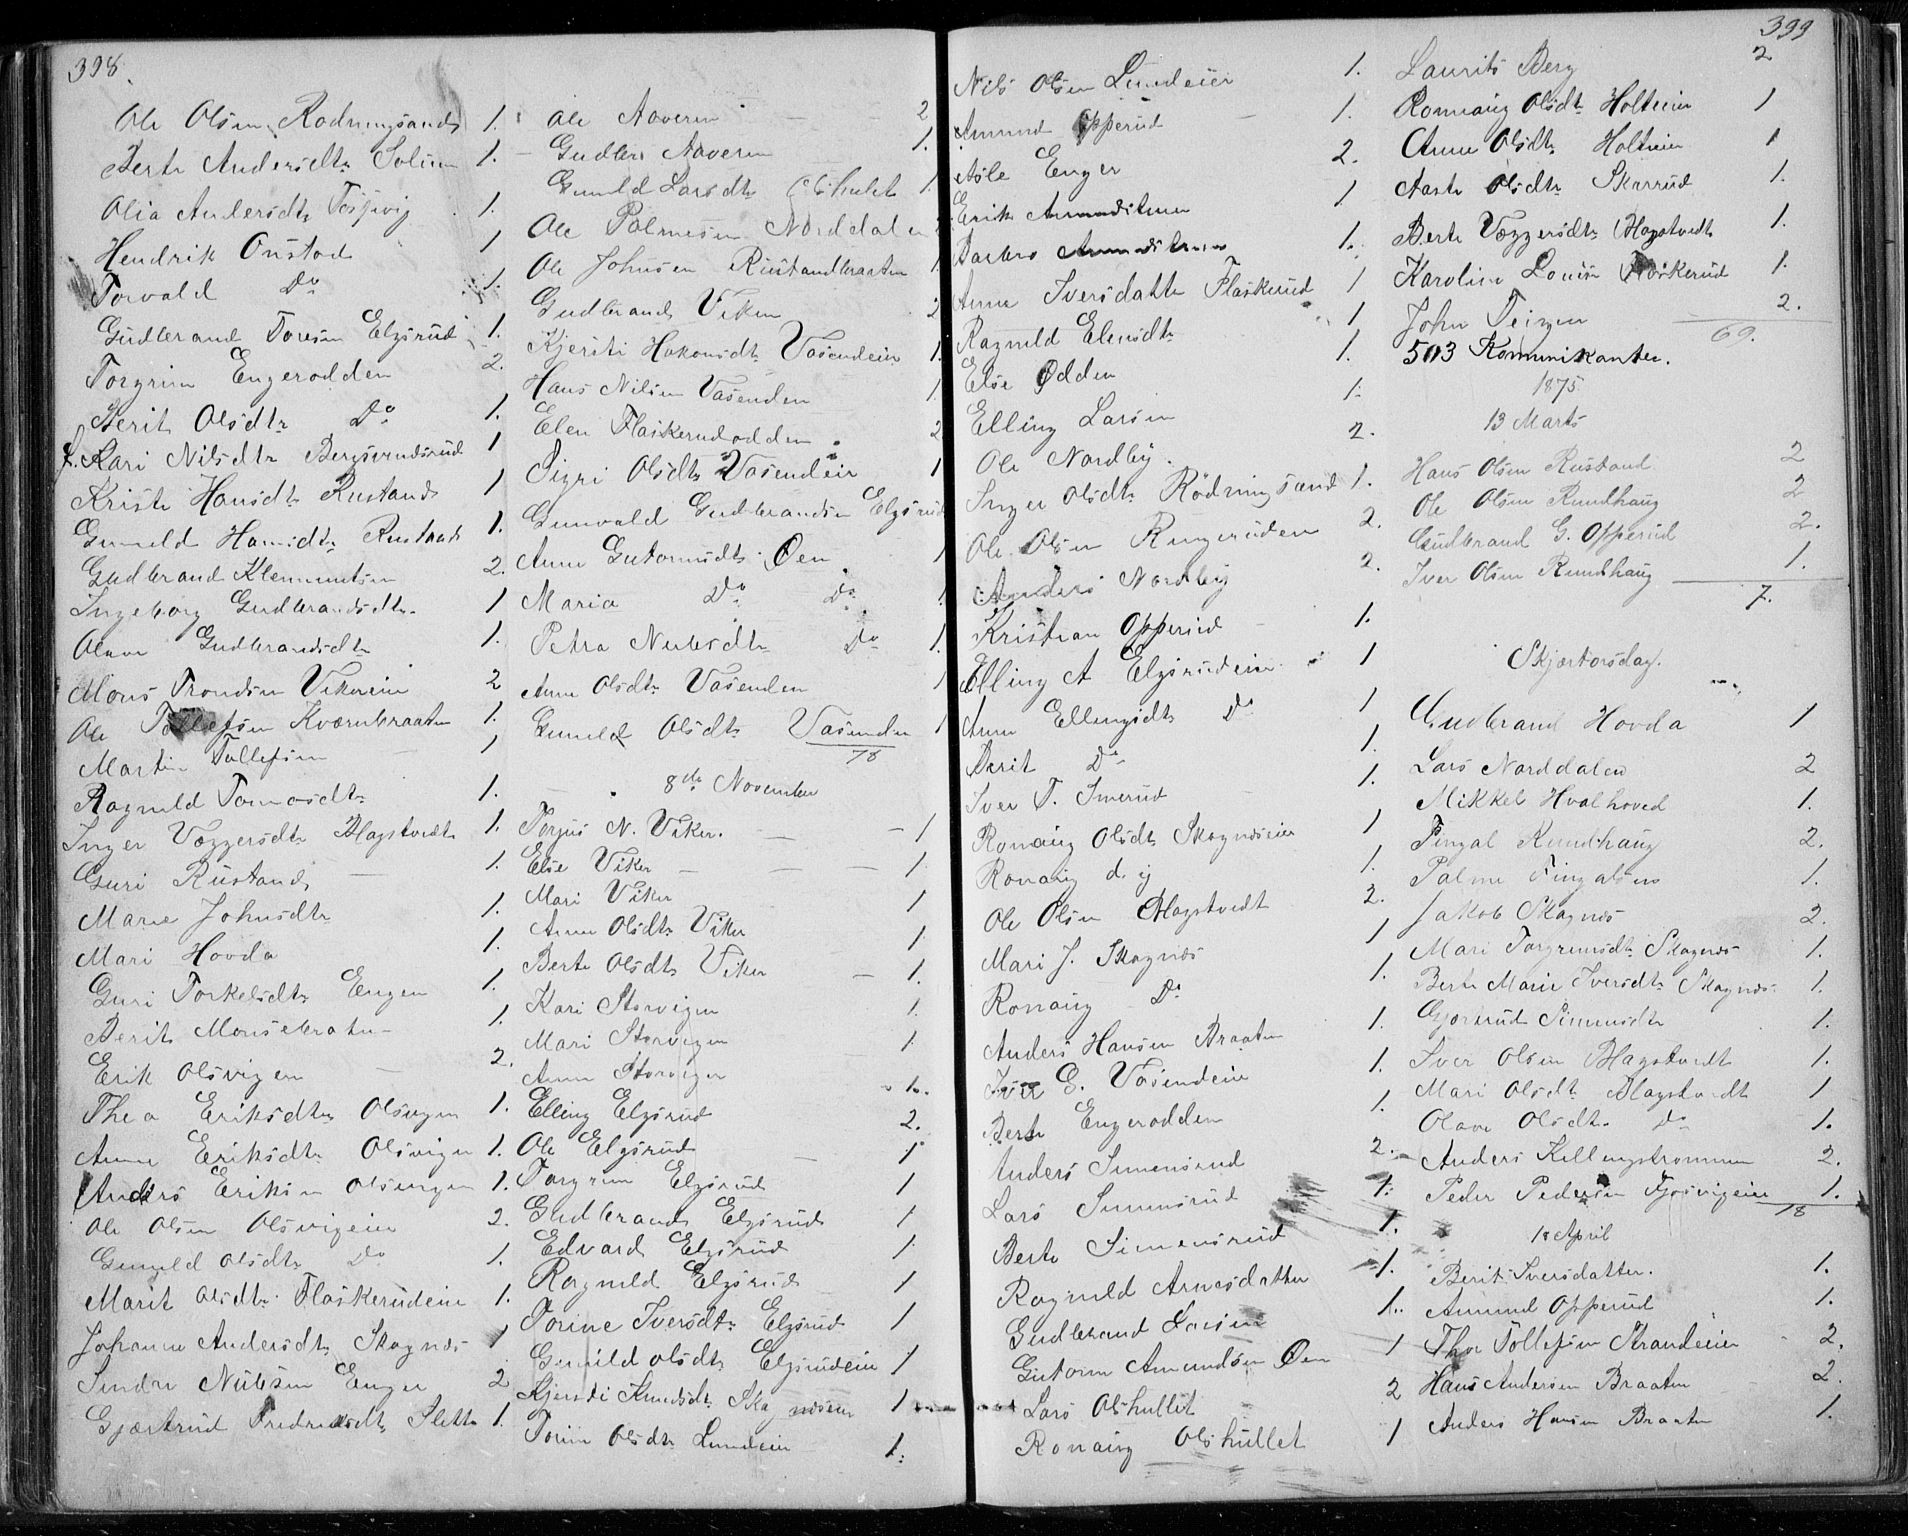 398.
Ole Olsen Rødningsand 1.
Berte Andersdtr Solum 1.
Olia Andersdtr Tosjvig 1.
Hendrik Onstad 1
Torvald Do 1.
Gudbrand Toresen Elgsrud 1.
Torgrim Engerodden 2.
Berit Olsdtr Do 1.
Kari Nilsdtr Bergsrudsrud 1
Kristi Hansdtr Rustand 1
Gunild Hansdtr Rustand 1.
Gudbrand Klemmetsen 2.
Ingeborg Gudbrandsdtr 1
Olava Gudbrandsdtr 1.
Mons Trondsen Vikereie 2
Ole Tollefsen Kværnbraaten 1.
Martin Tollefsen 1
Ragnild Tomasdtr 1.
Inger Væggersdtr Hagstvedt 1.
Guri Rustand 1.
Marie Johnsdtr 1.
Mari Hovda 1.
Guri Torkelsdtr Engen 1.
Berit Monsebraten 1.
Erik Olsvigen 2.
Thea Eriksdtr Olsvigen 1.
Anne Eriksdtr Olsvigen 1.
Anders Eriksen Olsvigen 1.
Ole Olsen Olsvigeie 2.
Gunild Olsdtr Do 1.
Marit Olsdtr Flaskerudeie 1.
Johanne Andersdtr Skagnæs 1
Sindre Nubsen Enger 2
Gjærtrud Fredriksdtr Slette 1.
Ole Aaveren 2
Gudbr. Aaveren 1.
Gunild Larsdtr Olshulet 1.
Ole Palmesen Norddalen
Ole Johnsen Rustandbraaten 1.
Gudbrand Viken 2
Kjersti Hakonsdtr Vasendeie 1.
Hans Nilsen Vasenden 1
Elen Flaskerudodden 2
Sigri Olsdtr Vasendeie 1
Gunvald Gudbrandsen Elgsrud
Anne Gutormsdtr Øen 1
Maria Do Do 1
Petra Nubsdtr Do 1.
Anne Olsdtr Vasenden 1
Gunild Olsdtr Vasenden 1
78
8de November
Torgus N. Viker 1
Else Viker 1.
Mari Viker 1
Anne Olsdtr Viker 1
Berte Olsdtr Viker 1.
Kari Storvigen 1.
Mari Storvigen 1.
Anne Storvigen 1.
Elling Elgsrud 2.
Ole Elgsrud 1
Torgrim Elgsrud 1
Gudbrand Elgsrud 1
Edvard Elgsrud 1.
Ragnild Elgsrud 1
Torine Iversdtr Elgsrud 1
Gunild Olsdtr Elgsrudeie 1
Kjersti Knudsdtr Skagnæseie 1
Torine Olsdtr Lundeie 1.
399
Nils Olsen Lundeier 1.
Amund Opperud 1.
Asle Enger 2.
Erik Amundsen 1
Barbro 1.
Anne Iversdatter Flaskerud 1
Ragnild Elensdtr 1
Else Odden 1.
Elling Larsen 1.
Ole Nordby 2.
Inger Olsdtr Rødningsand 1.
Ole Olsen Ringeruden 2.
Anders Nordby 2.
Kristian Opperud 1.
Elling A Elgsrudeie 1
Anne Ellingsdtr Do 1
Berit Do 1.
Iver T. Imerud 1.
Ronaug Olsdtr Skagnæseie 1
Ronaug d. y 1.
Ole Olsen Hagstvedt 2.
Mari J. Skagnæs 1
Ronaug Do 1.
Anders Hansen Braaten 1.
Iver E. Vasendeie 1.
Berte Engerodden 1.
Anders Simensrud 2.
Lars Simensrud 1.
Berte Simensrud 1.
Ragnild Arnesdatter 1.
Gudbrand Larsen 1.
Gutorm Amundsen Øen 1
Lars Olshullet 2
Ronaug Olshullet 1
Laurits Berg 2
Ronnaug Olsdtr Holteie 1
Anne Olsdtr Holteie 1
Aaste Olsdtr Skarrud 1.
Berte Væggersdtr Hagstvedt 1.
Karoline Louise Flaskerud 1.
John Teigen 2.
69.
503 Kommunikanter.
1875
13 Marts
Hans Olsen Rustand 2
Ole Olsen Rundhaug 2
Gudbrand G. Opperud 2.
Iver Olsen Rundhaug 1.
7.
Skjærtorsdag.
Gudbrand Hovda 1
Lars Norddalen 2
Mikkel Hvalhoved 1.
Fingal Rundhaug 2.
Palme Fingalsen 1.
Jakob Skagnæs 2.
Mari Torgrimsdtr Skagnæs 1.
Berte Marie Iversdtr Skagnæs 1.
Gjørtrud Simensdtr 1.
Iver Olsen Hagstvedt 1.
Mari Olsdtr Hagstvedt 1
Olava Olsdtr Do 1.
Anders Killingstrømmen 2.
Peder Pedersen Fjosvigeie 1.
18
18 April
Berit Iversdatter. 1.
Amund Opperud 1.
Thor Tollefsen Strandeie 2.
Hans Andersen Braaten 2.
Anders Hansen Braaten 1.